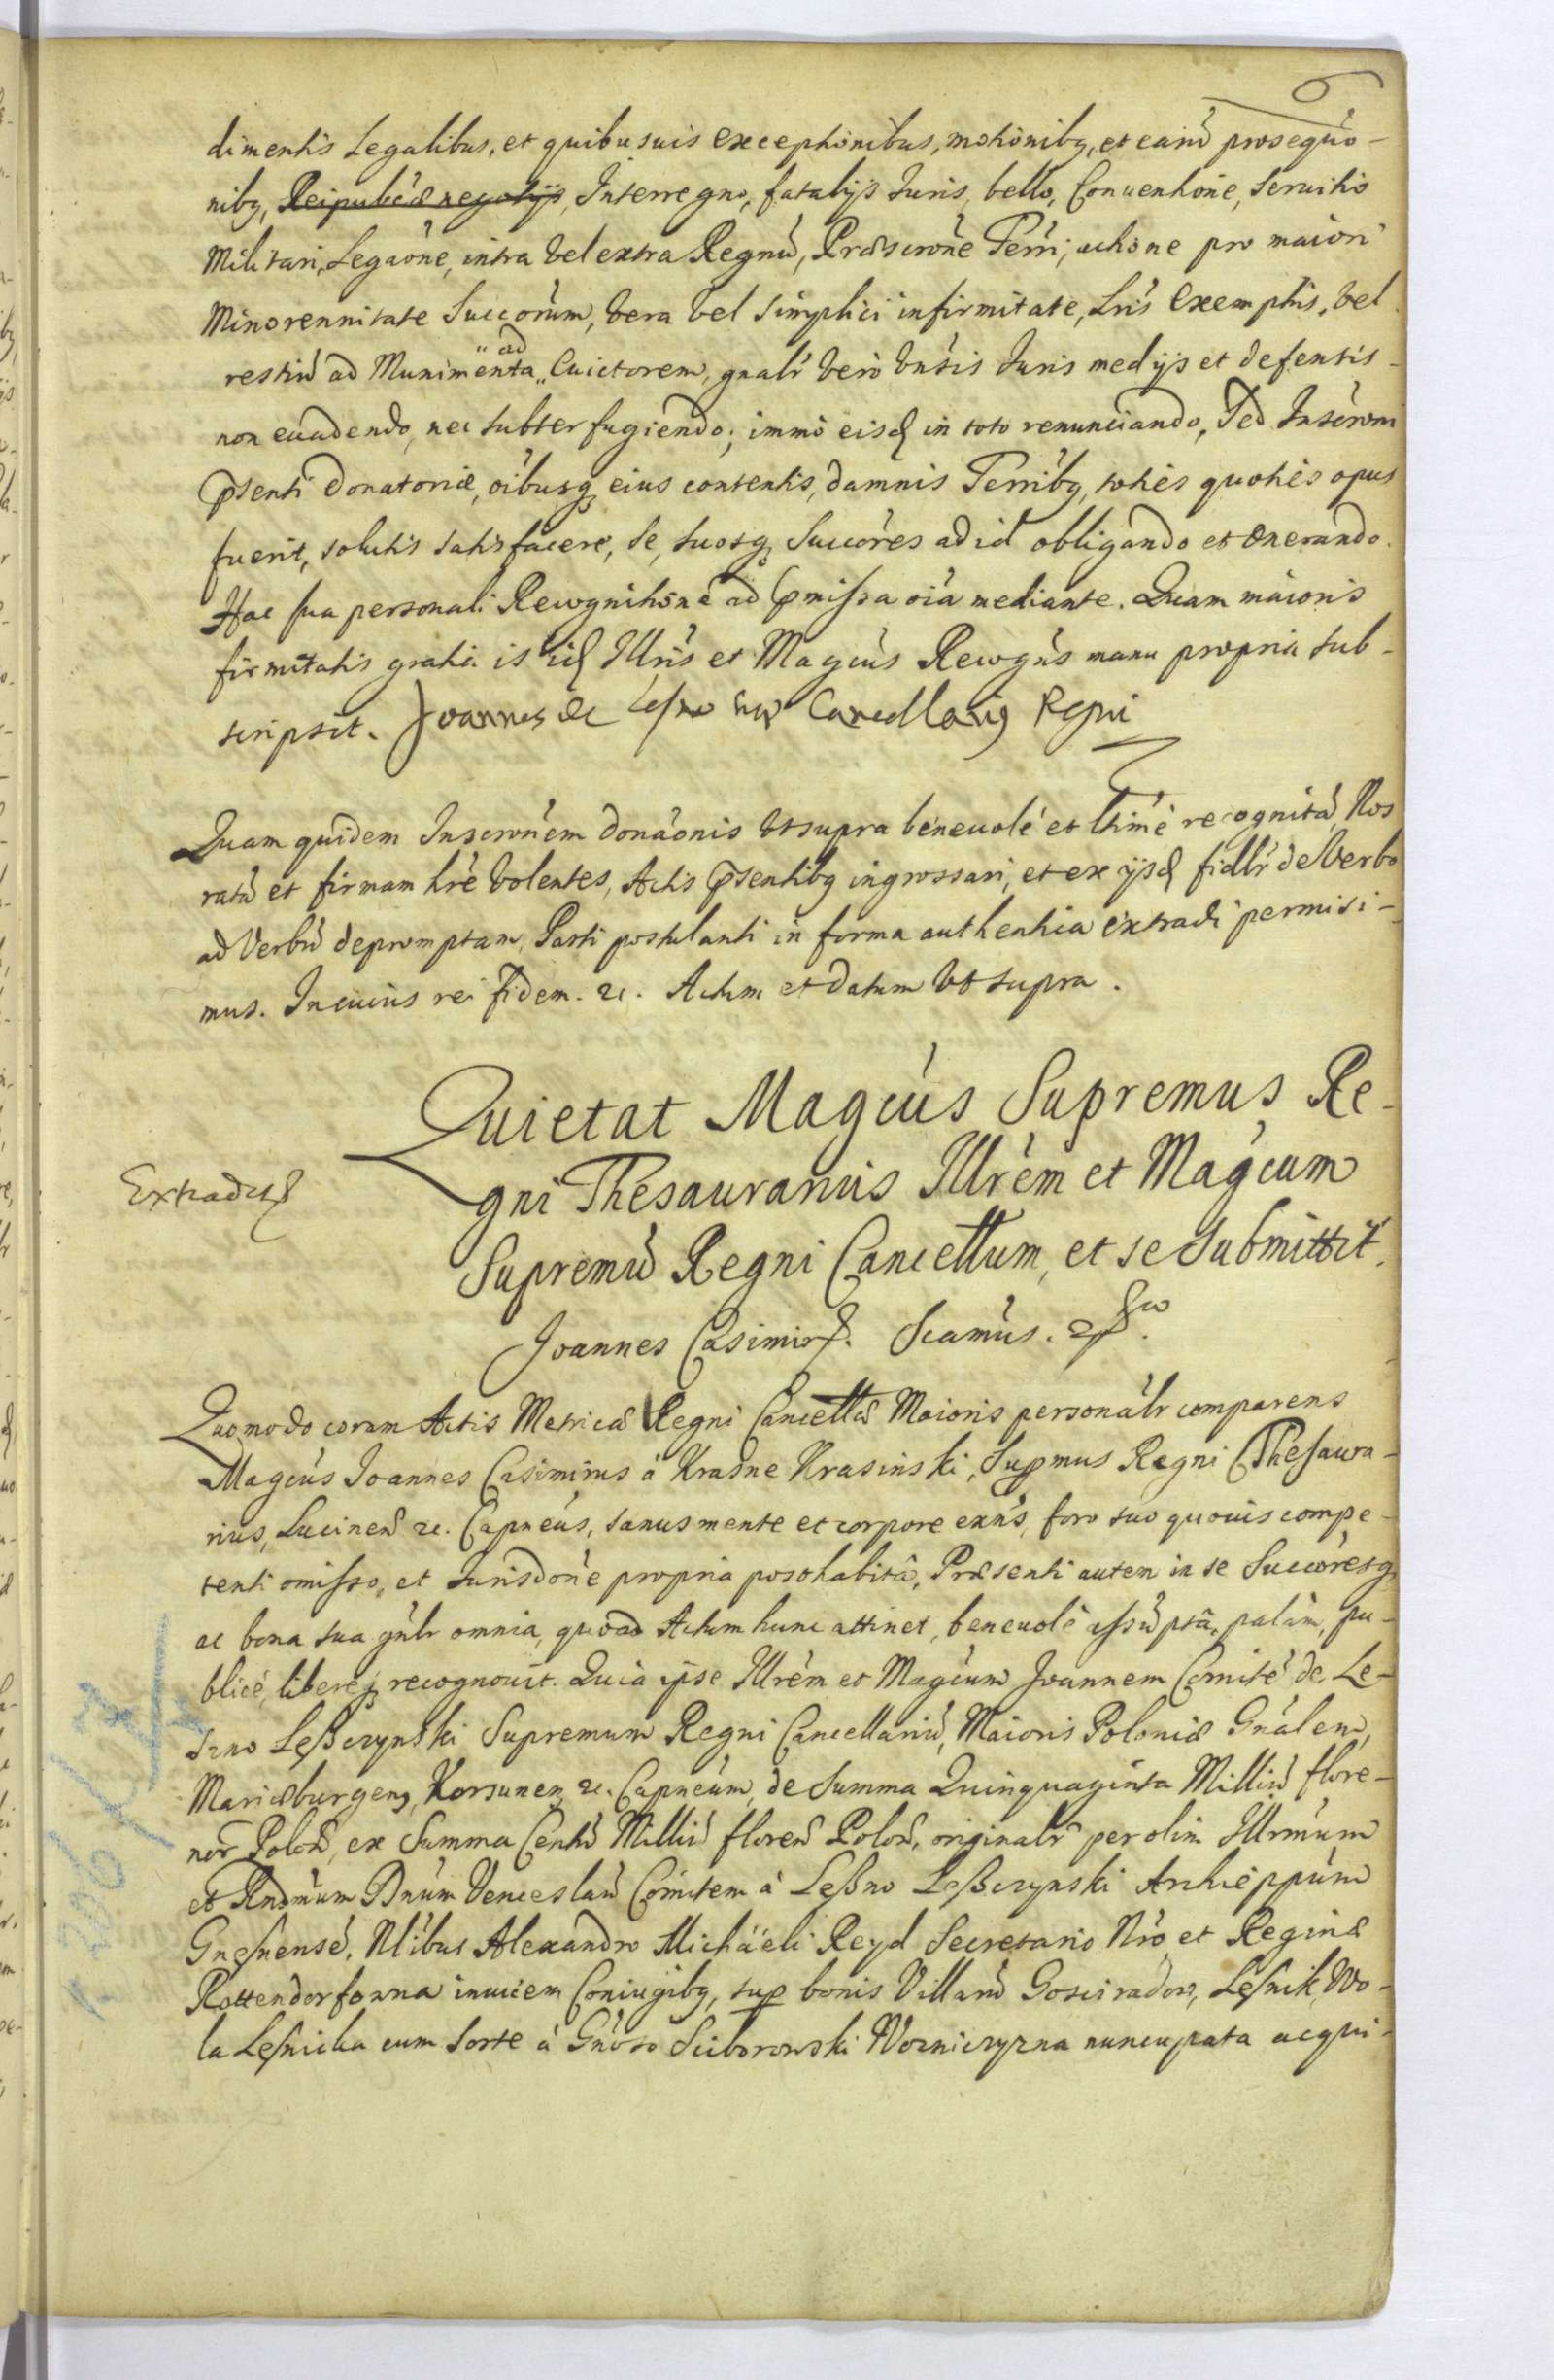 6
dimentis Legalibus, et quibusuis exceptionibus, motioniby, et earũ prosequo-
niby, Reipubcæ negotijs, Interregno, fatalijs Iuris, bello, Conuentione, Seruitio
Militari, Legaone, intra vel extra Regnũ, Præscrone Terri, actione pro maiori
Minorennitate Succorum, vera vel simplici infirmitate, Lris Exemptis, vel
ad
restiũ ad Munimenta „ Euictorem, gnalr vero vnsis Iuris medijs et defensis
non euadendo, nec subterfugiendo; immo eisd in toto renunciando, Sed Inscroni
Psenti Donatoriæ, oibusq eius contentis, damnis Terriby, toties quoties opus
fuerit, solutis satisfacere, Se, suosq Succores ad id obligando et Onerando.
Hac sua personali Recognitione ad Pmissa oia mediante. Quam maioris
firmitatis gratia is id Illris et Magcus Recogns manu propria sub-
scripsit. Joannes de Leszno Cancellarius Regni
Quam quidem Inscronem donaonis vt supra beneuole et ltime recognitã, Nos
ratã et firmam hre volentes, Actis Psentiby ingrossari, et ex ijsd fidlr de Verbo
ad Verbũ depromptam, Parti postulanti in forma authentica extradi permisi-
mus. In cuius rei fidem. &c. Actum et datum vt supra.
Quietat Magcus Supremus Re-
gni Thesaurarius Illrem et Magcum
Supremũ Regni Cancellum, et se submittit.
Extradit
Joannes Casimir. Scamus.
Quomodo coram Actis Metricæ Regni Cancellæ Maioris personalr comparens
Magcus Joannes Casimirus à Krasne Krasinski, Supmus Regni Thesaura-
rius, Lucinen &c. Capneus, sanus mente et corpore exns, foro suo quouis compe-
tenti omisso, et Iurisdone propria posthabitâ, Præsenti autem in se Succoresq
ac bona sua gnlr omnia, quoad Actum hunc attinet, beneuole assũptâ, palàm, pu-
blicè, libereq recognouit. Quia ipse Illrem et Magcum Joannem Comitē de Le-
szno Leßczynski Supremum Regni Cancellariũ, Maioris Poloniæ Gnalem,
Mariæburgen, Korsunen &c. Capneum, de Summa Quinquaginta Milliũ flore-
nor Polon, ex Summa Centũ Milliũ floren Polon, originalr per olim Illrmum
et Rndmum Dnum Venceslaũ Comitem à Leßno Leßczynski Archieppum
Gnesnensē, Nlibus Alexandro Michaëli Reyd Secretario Nro, et Reginæ
Rottendorfowna inuicem Coniugiby, sup bonis Villarũ Gosciradow, Lesnik, Wo-
la Lesnicka cum Sorte à Gnoso Sciborowski Wozniczyzna nuncupata acqui-